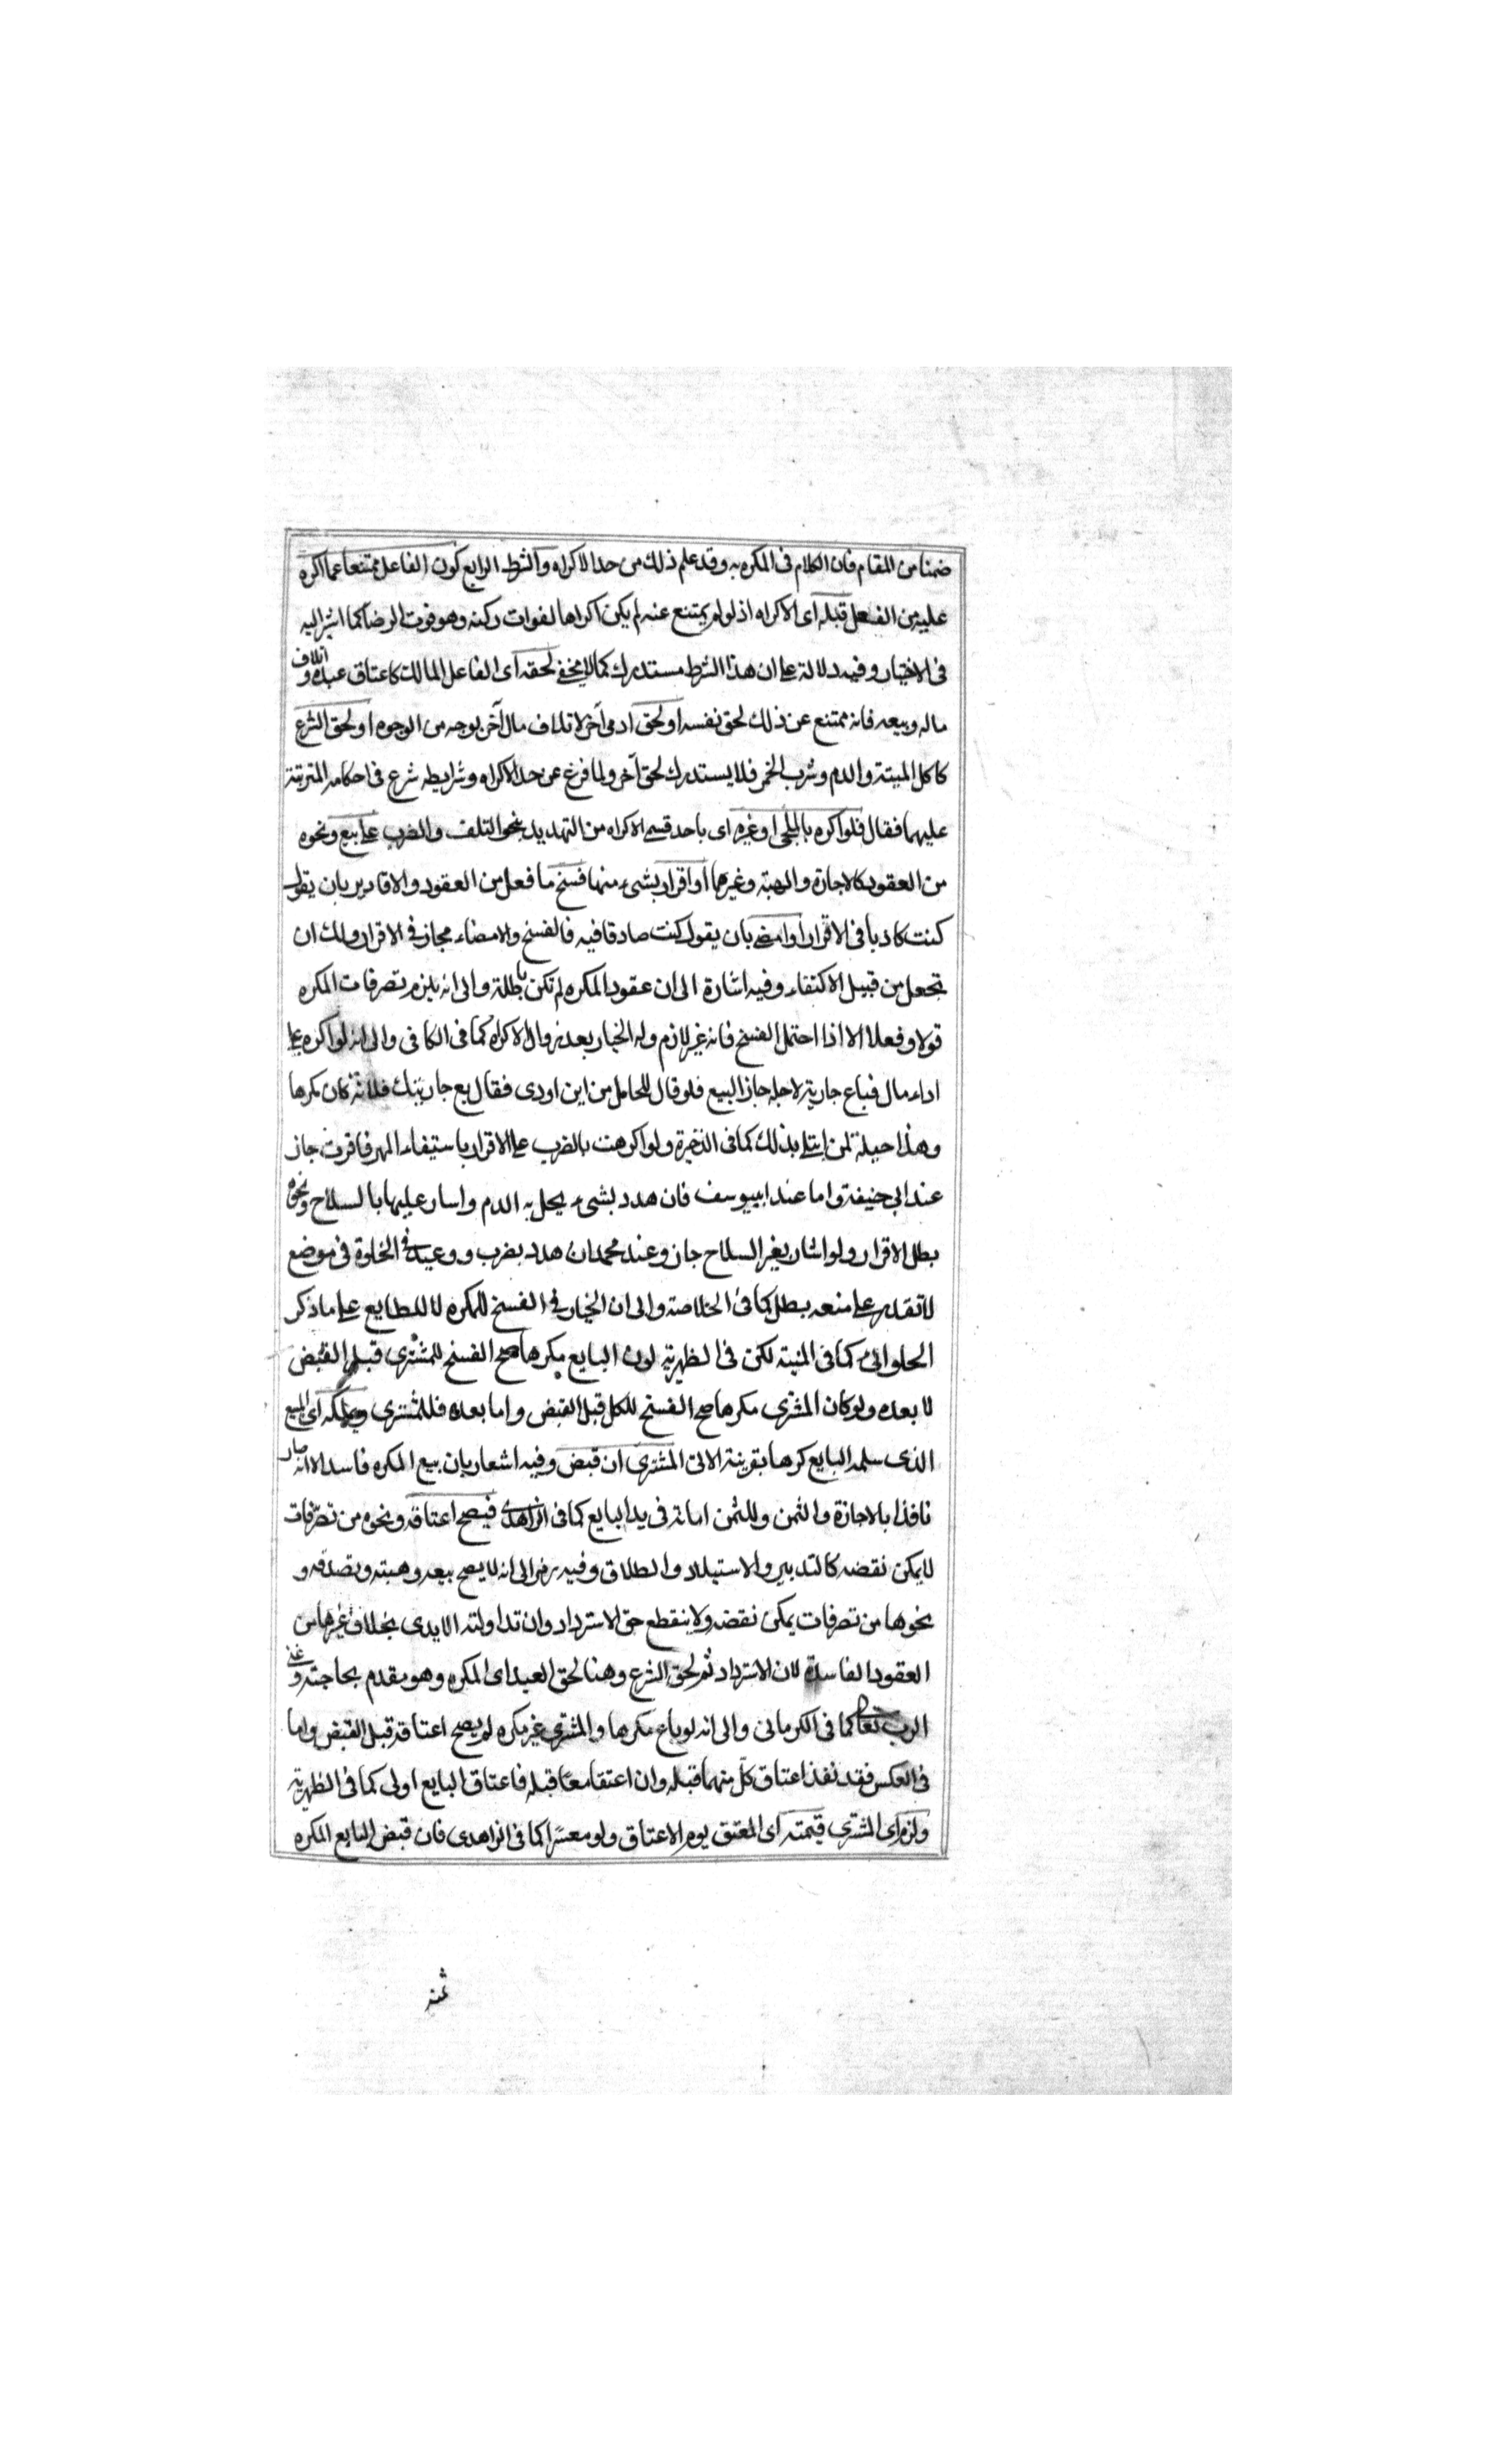 ضمنا من المقام فان الكلام فى المكره به وقد علم ذلك من حد الاكراه والشرط الرابع كون الفاعل ممتنعا عما اكره
عليه من الفعل قبله اى الاكراه اذ لو لم يمتنع عنه لم يكن اكراها لفوات ركنه وهو فوت الرضا كما اشير اليه
فى الاختيار وفيه دلالة على ان هذا الشرط مستدرك كما لا يخفى لحقه اى الفاعل المالك كاعتاق عبده واتلاف
ماله وبيعه فانه ممتنع عن ذلك لحق نفسه او لحق ادمى آخر لاتلاف مال آخر بوجه من الوجوه او لحق الشرع
كاكل الميتة والدم وشرب الخمر فلا يستدرك لحق آخر ولما فرغ عن حد الاكراه وشرايطه شرع فى احكامه المترتبة
عليهما فقال فلو اكره بالملجى او غيره اى باحد قسمى الاكراه من التهديد بنحو التلف والضرب على بيع ونحوه
من العقود كالاجارة والهبة وغيرها او اقرار بشىء منها فسخ ما فعل من العقود والاقارير بان يقول
كنت كاذبا فى الاقرار او امضى بان يقول كنت صادقا فيه فالفسخ والامضاء مجاز فى الاقرار ولك ان
تجعل من قبيل الاكتفاء وفيه اشارة الى ان عقود المكره لم تكن باطلة والى انه يلزم تصرفات المكره
قولا وفعلا الا اذا احتمل الفسخ فانه غير لازم وله الخيار بعد زوال الاكراه كما فى الكافى والى انه لو اكره على
اداء مال فباع جارية لاجله جاز البيع فلو قال للحامل من اين اودى فقال بع جاريتك فلانة كان مكرها
وهذا حيلة لمن ابتلى بذلك كما فى الذخيرة ولو اكرهت بالضرب على الاقرار باستيفاء المهر فاقرت جاز
عند ابى حنيفة واما عند ابىيوسف فان هدد بشىء يحل به الدم واسار عليها بالسلاح ونحوه
بطل الاقرار ولو اشار بغير السلاح جاز وعند محمد ان هدد بضرب ووعيد فى الخلوة فى موضع
لا تقدر على منعه بطل كما فى الخلاصة والى ان الخيار فى الفسخ للمكره لا للطايع على ما ذكر
الحلوائى كما فى المنية لكن فى الظهرية لو ان البايع مكرها صح الفسخ للمشترى قبل القبض
لا بعده ولو كان المشترى مكرها صح الفسخ للكل قبل القبض واما بعده فللمشترى ويملكه اى المبيع
الذى سلمه البايع كرها بقرينة الاتى المشترى ان قبض وفيه اشعار بان بيع المكره فاسد الا انه صار
نافذا بالاجازة والثمن وللثمن امانة فى يد البايع كما فى الزاهدى فيصح اعتاقه ونحوه من تصرفات
لا يمكن نقضه كالتدبير والاستيلاد والطلاق وفيه رمز الى انه لا يصح بيعه وهبته وتصدقه و
نحوها من تصرفات يمكن نقضه ولا ينقطع حق الاسترداد وان تداولته الايدى بخلاف غيرها من
العقود الفاسدة لان الاسترداد ثم لحق الشرع وهنا لحق العبد اى المكره وهو مقدم بحاجته وغنى
الرب تعالى كما فى الكرمانى والى انه لو باع مكرها والمشترى غير مكره لم يصح اعتاقه قبل القبض واما
فى العكس فقد نفذ اعتاق كل منهما قبله وان اعتقا معا قبله فاعتاق البايع اولى كما فى الظهرية
ولزم اى المشترى قيمته اى المعتق يوم الاعتاق ولو معسرا كما فى الزاهدى فان قبض البايع المكره
ثمنه